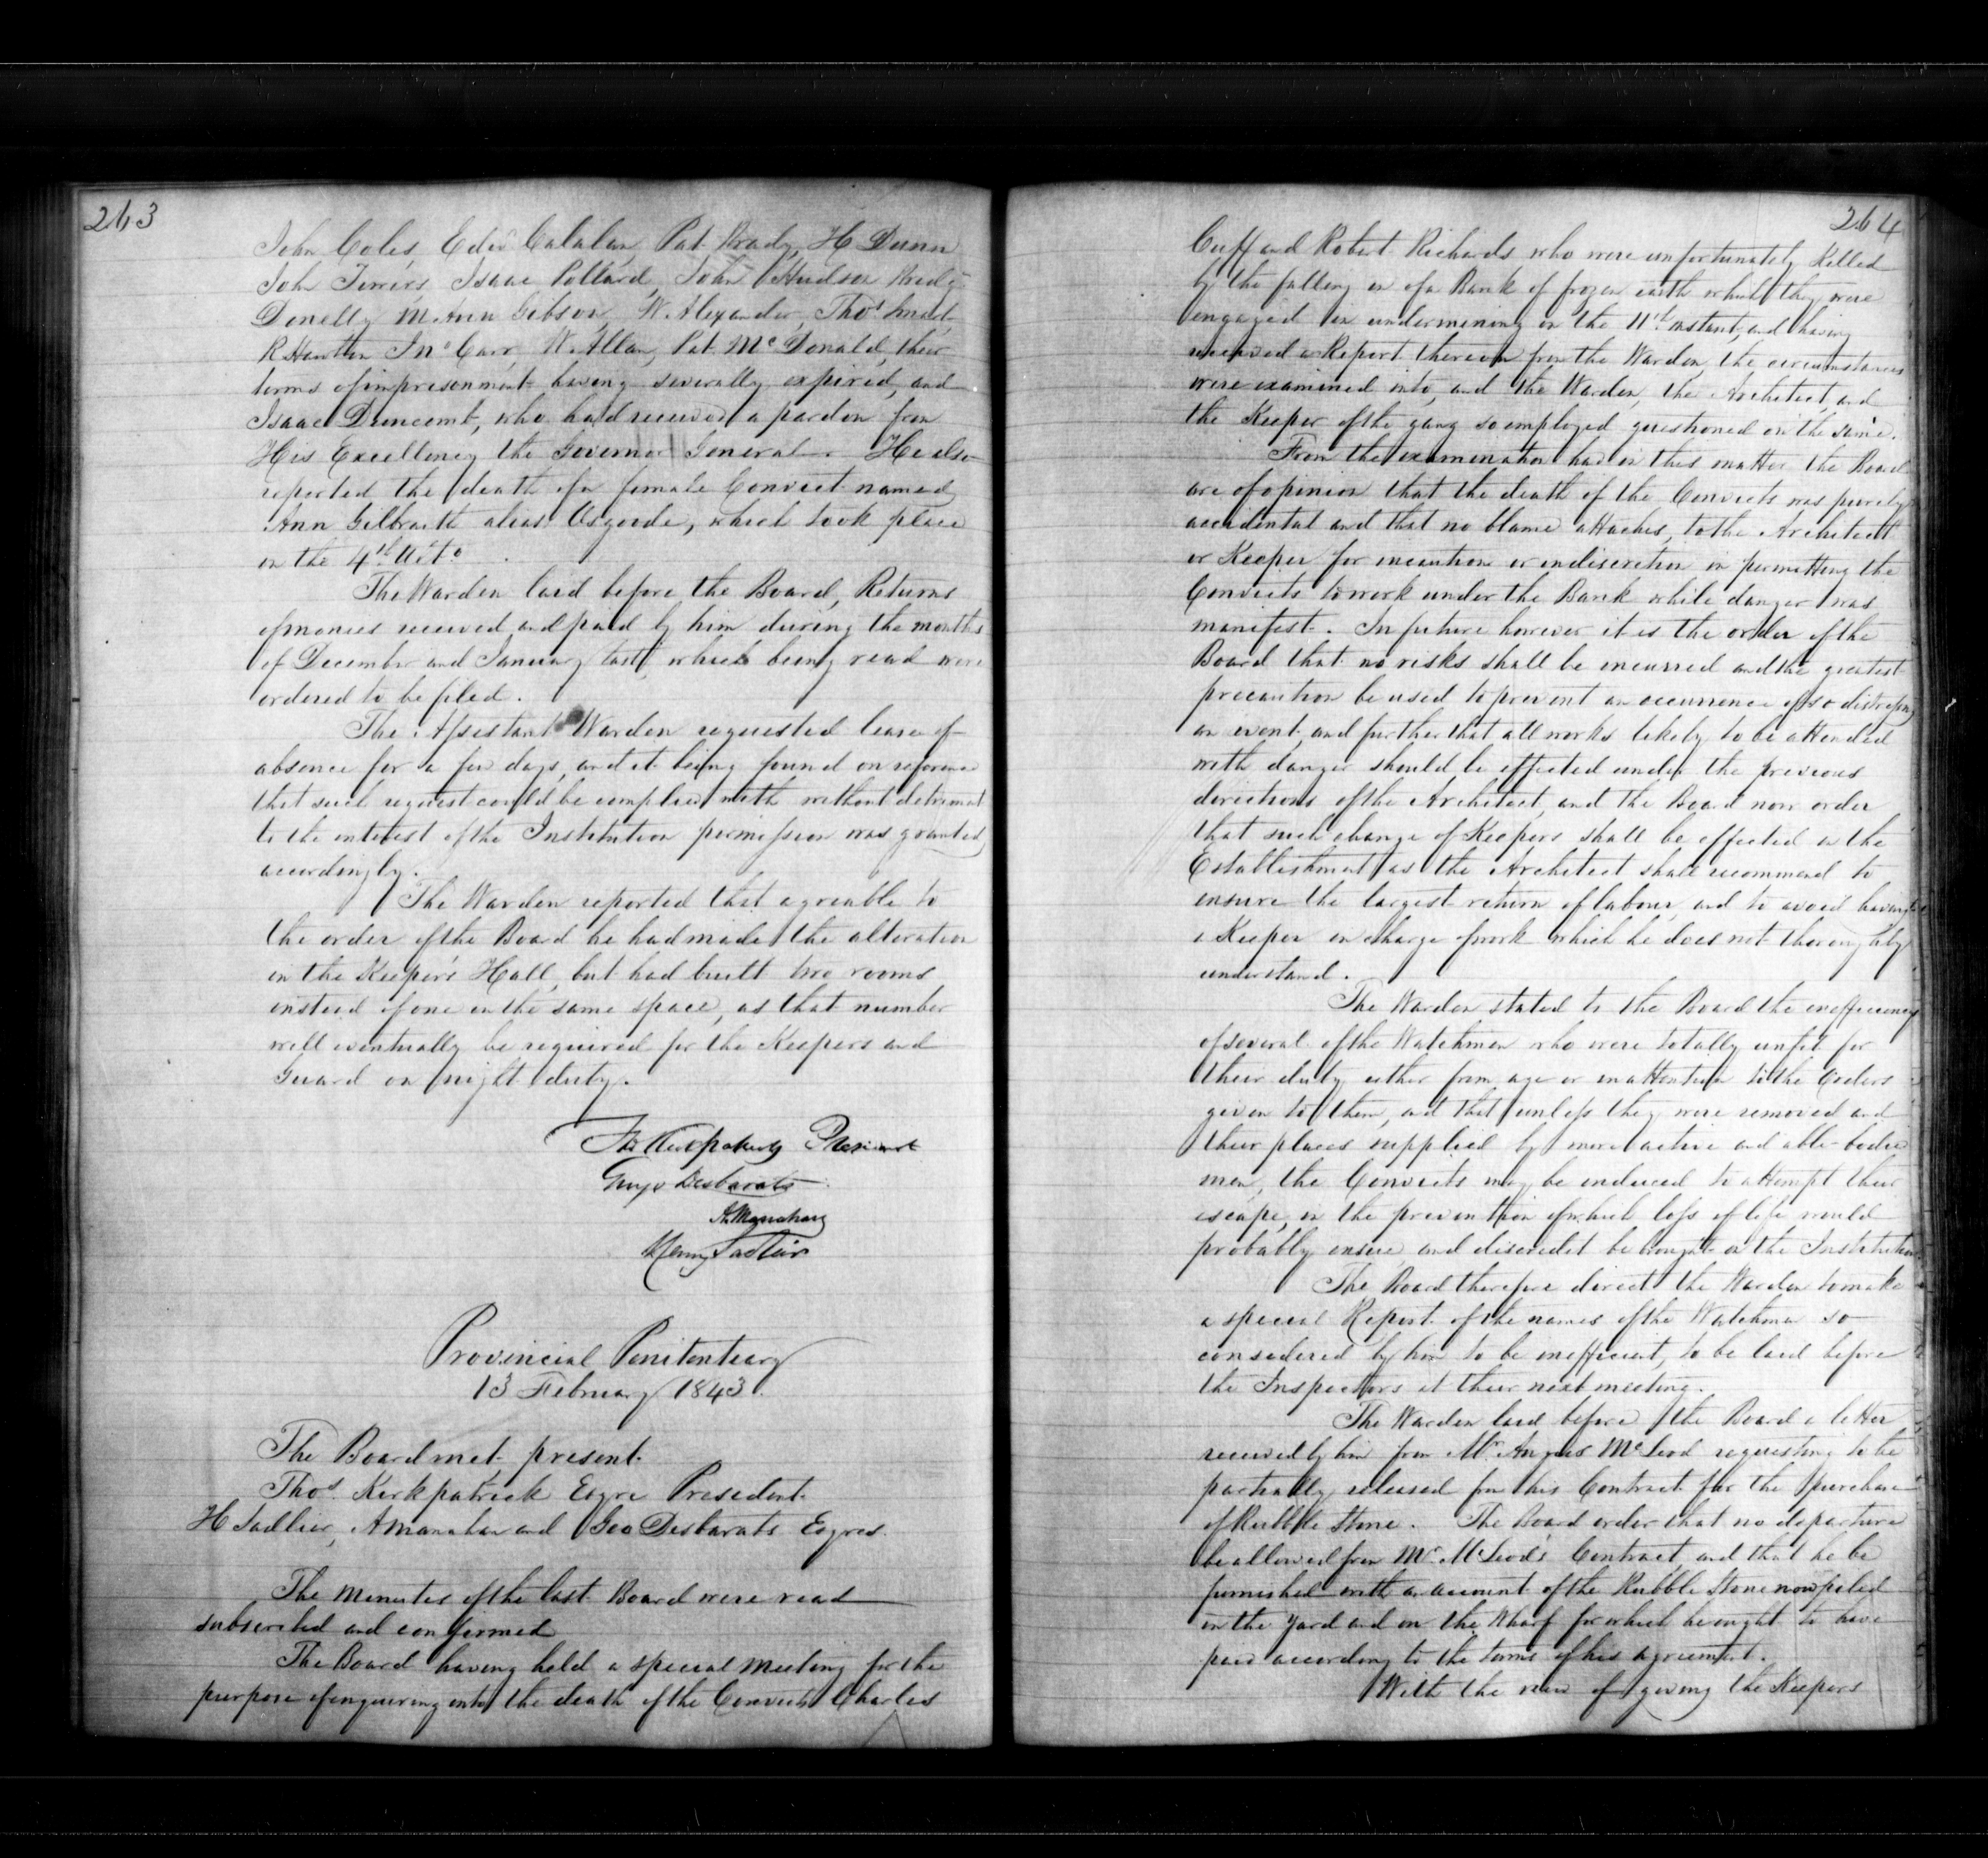 263
John Coles, Edw Calalan, Pat Brady, H Dunn
John Isaac Pollard, John Hudson Bridgt
Donelly M. Ann Gibson, W. Alexander, Thos Smart
R Hawton Jno Carr, W. Allan, Pat McDonald, their
terms of imprisonment having severally expired, and
Isaac Duncomb, who had received a pardon from
His Excellency the Governor General. He also
reported the death of a female Convict named
Ann Gilbraith alias Osgoode, which took place
on the 4th Ulto.
The Warden laid before the Board, Returns
of monies received and paid by him during the months
of December and January last, which being read were
ordered to be filed.
The Assistant Warden requested leave of
absence for a few days, and it being found on reference
that such request could be complied with without detriment
to the interest of the Institution permission was granted
accordingly.
The Warden reported that agreable to
the order of the Board he had made the alteration
in the Keepers Hall, but had built two rooms
instead of one in the same space, as that number
will eventually be required for the Keepers and
Guard on night duty.
Thos Kirkpatrick President
George Desbarats
A. Manahan
Henry Sadlier
Provincial Penitentiary
13 February 1843.
The Board met, present
Thos. Kirkpatrick Esqre President
H Sadlier, A Manahan and Geo Desbarats Esqres.
The Minutes of the last Board were read
subscribed and confirmed
The Board having held a special Meeting for the
purpose of enquiring into the death of the Convicts Charles
264
Cuff and Robert Richards who were unfortunately Killed
by the falling in of a Bank of frozen earth which they were
engaged in undermining on the 11th instant, and having
received a Report thereon from the Warden, the circumstances
were examined into, and the Warden, the Architect, and
the Keeper of the gang so employed questioned on the same.
From the examination had in this matter the Board
are of opinion that the death of the Convicts was purely
accidental and that no blame attaches, to the Architect
or Keeper for incaution or indiscretion in permitting the
Convicts to work under the Bank while danger was
manifest. In future however it is the order of the
Board that no risks shall be incurred and the greatest
precaution be used to prevent an occurrence of so distressing
an event, and further that all works likely to be attended
with danger should be effected under the previous
directions of the Architect, and the Board now order
that such change of Keepers shall be effected in the
Establishment as the Architect shall recommend to
ensure the largest return of labour, and to avoid having
a Keeper in charge of work which he does not thoroughly
understand.
The Warden stated to the Board the inefficiency
of several of the Watchmen who were totally unfit for
their duty either from age or inattention to the Orders
given to them, and that unless they were removed and
their places supplied by more active and able-bodied
men, the Convicts may be induced to attempt their
escape, in the prevention of which loss of life would
probably ensue, and discredit be brought on the Institution.
The Board therefore direct the Warden to make
a special Report of the names of the Watchmen so
considered by him to be inefficient, to be laid before
the Inspectors at their next meeting.
The Warden laid before the Board a letter
received by him from Mr Angus McLeod requesting to be
partially released from his Contract for the purchase
of Rubble Stone. The Board order that no departure
be allowed from Mr. McLeod's Contract, and that he be
furnished with an account of the Rubble Stone now piled
in the yard and on the Wharf for which he ought to have
paid according to the terms of his agreement.
With the view of giving the Keepers